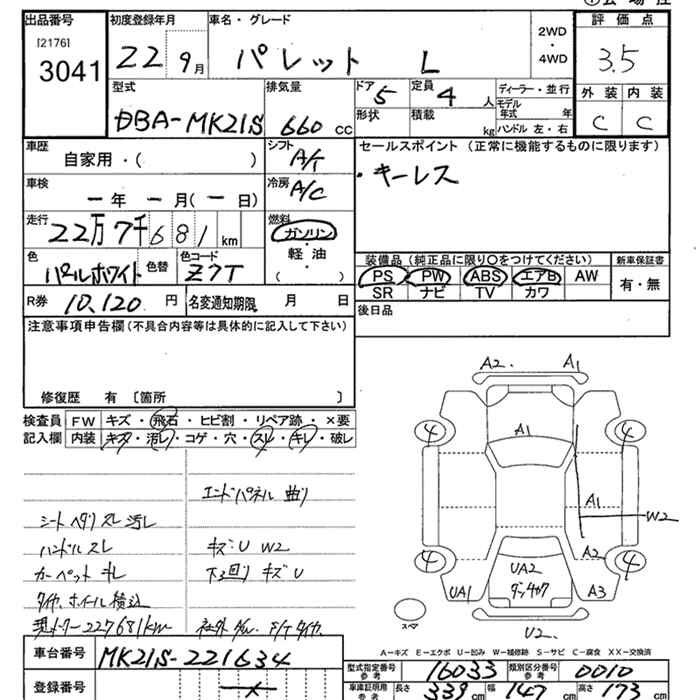 出品番号 初度登録年月 車名・グレード 評価点
[21761]
3041
22 9月 パレット L
2WD
・
4WD
3.5
型式 排気量 ドア 5 定員 4 人 ディーラー・並行
モデル
年式 年
外装 内装
DBA-MK21S 660 cc 形状 積載 kg ハンドル 左・右 C C
車歴 自家用・( ) シフト A/T セールスポイント (正常に機能するものに限ります)
・キーレス
車検 ー年 ー月(ー日) 冷房 A/C
走行 22万7千681 km 燃料 ガソリン
・
軽油
( )
色 パールホワイト 色替 色コード Z7T
装備品 (純正品に限り○をつけてください) 新車保証書
PS PW ABS エアB AW 有・無
SR ナビ TV カワ
R券 10,120 円 名変通知期限 月 日 後日品
注意事項申告欄(不具合内容等は具体的に記入して下さい)
修復歴 有 〔箇所 〕
検査員 FW キズ・飛石・ヒビ割・リペア跡・×要
記入欄 内装 キズ・汚レ・コゲ・穴・スレ・キレ・破レ
エンドパネル 曲り
シート ヘタリ スレ 汚レ
ハンドル スレ キズ:U W2
カーペット キレ 下廻り キズ U
タイヤ、ホイール積込
現メーター227681km
A2. A1
4 A1 4
A1
W2
A2
4 4
UA1 UA2 A3
スペア
U2.
A-キズ E-エクボ U-凹み W-補修跡 S-サビ C-腐食 XX-交換済
車台番号 MK21S-221634
登録番号
型式指定番号
参考
16033 類別区分番号
参考
0010
車庫証明用
参考
長さ 339 cm 幅 147 cm 高さ 173 cm